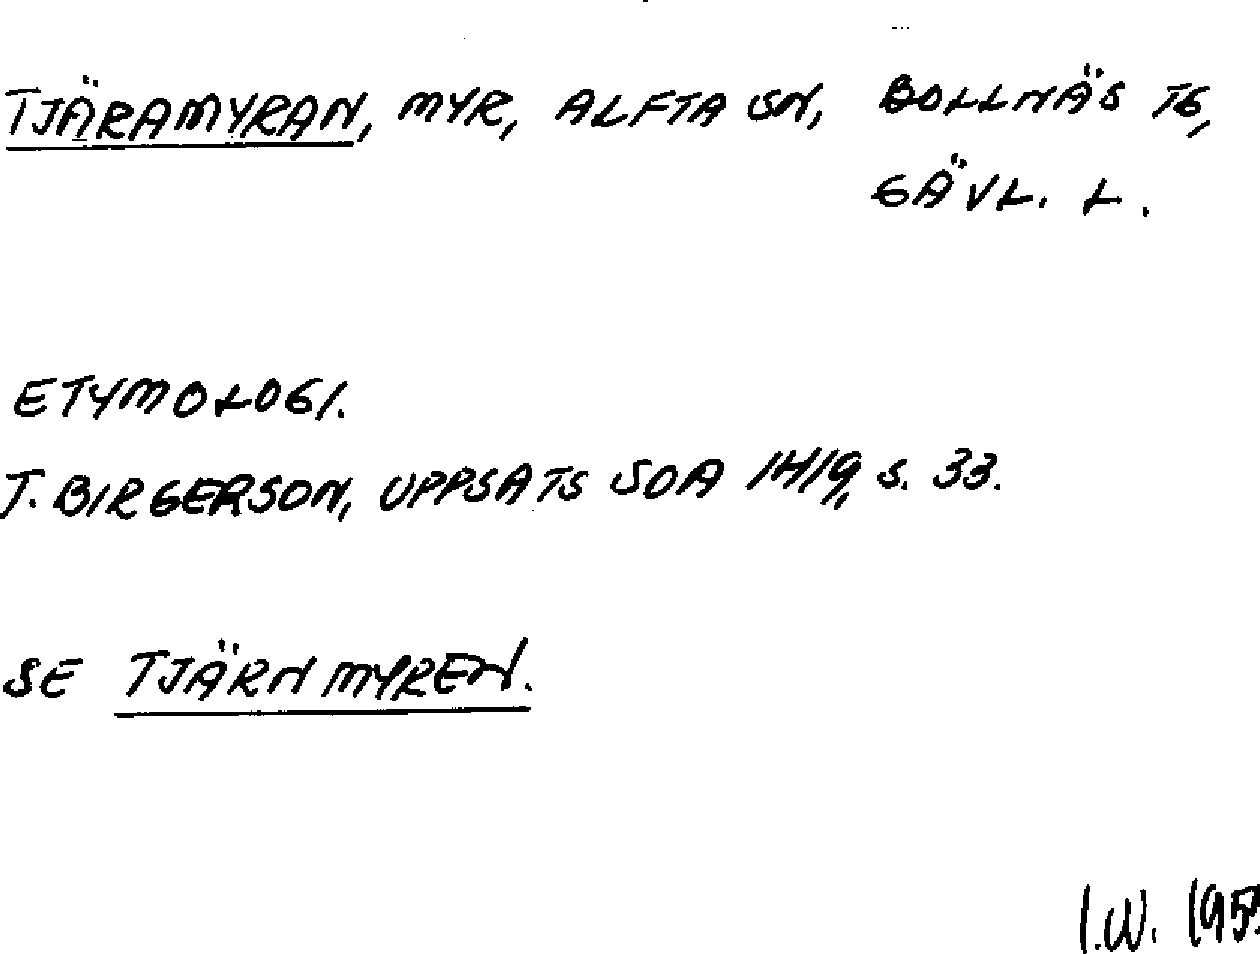 TJÄRAMYRAN, MYR, ALFTA SN, BOLLNÄS TG,
GÄVL. L.
ETYMOLOGI.
J. BIRGERSON, UPPSATS SOA 1419, S. 33.
SE TJÄRNMYREN.
I.W.